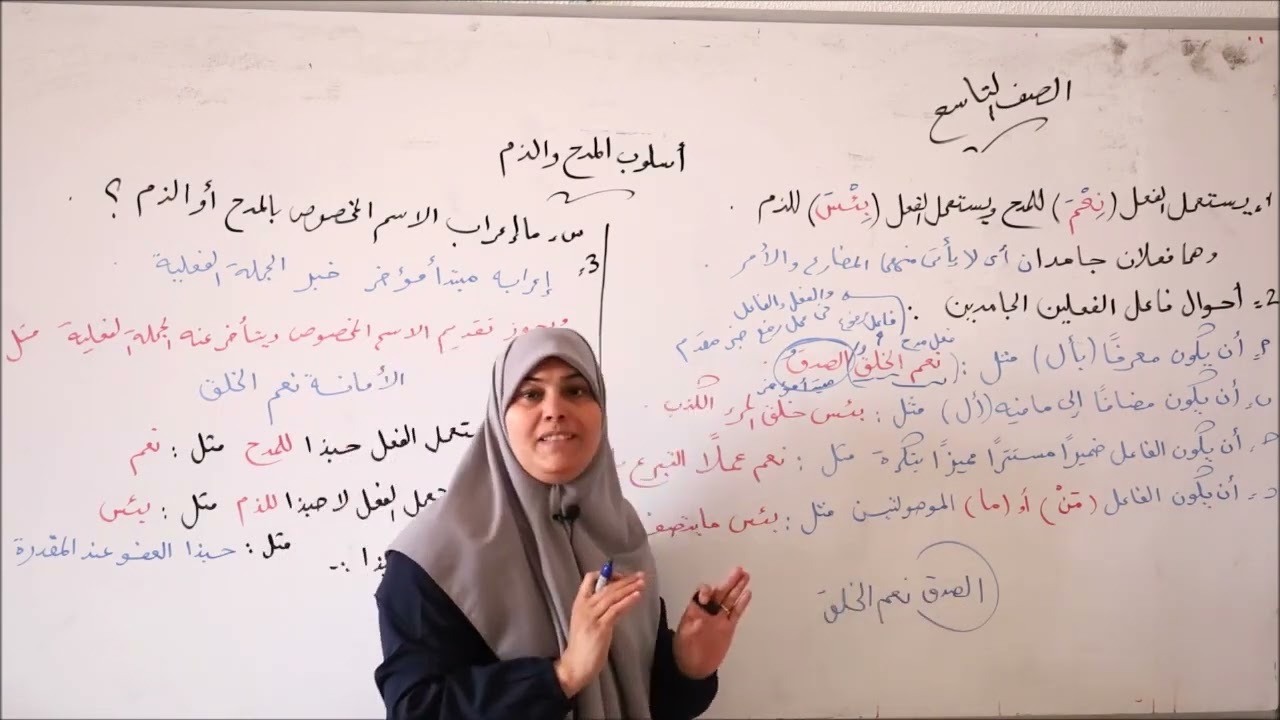 الصف التاسع
أسلوب المدح والذم
1- يستعمل الفعل (نِعْمَ) للمدح ويستعمل الفعل (بِئْسَ) للذم .
وهما فعلان جامدان أي لا يأتي منهما المضارع والأمر .
2- أحوال فاعل الفعلين الجامدين :
والفعل والفاعل
في محل رفع خبر مقدم
فعل مدح
فاعل مرفوع
أ- أن يكون معرفًا (بأل) مثل : نعم الخلقُ الصدقُ
مبتدأ مؤخر
ب- أن يكون مضافًا إلى ما فيه (أل) مثل : بئس خلق المرء الكذب .
جـ- أن يكون الفاعل ضميرًا مستترًا مميزًا بنكرة مثل : نعم عملًا التبرع
د- أن يكون الفاعل (مَنْ) أو (ما) الموصولتين مثل : بئس ما يتصف
الصدق نعم الخلق
س- ما إعراب الاسم المخصوص بالمدح أو الذم ؟
3- إعرابه مبتدأ مؤخر خبر الجملة الفعلية .
ويجوز تقديم الاسم المخصوص ويتأخر عنه الجملة الفعلية مثل
الأمانة نعم الخلق
الفعل حبذا للمدح مثل : نعم
الفعل لا حبذا للذم مثل : بئس
مثل : حبذا العفو عند المقدرة